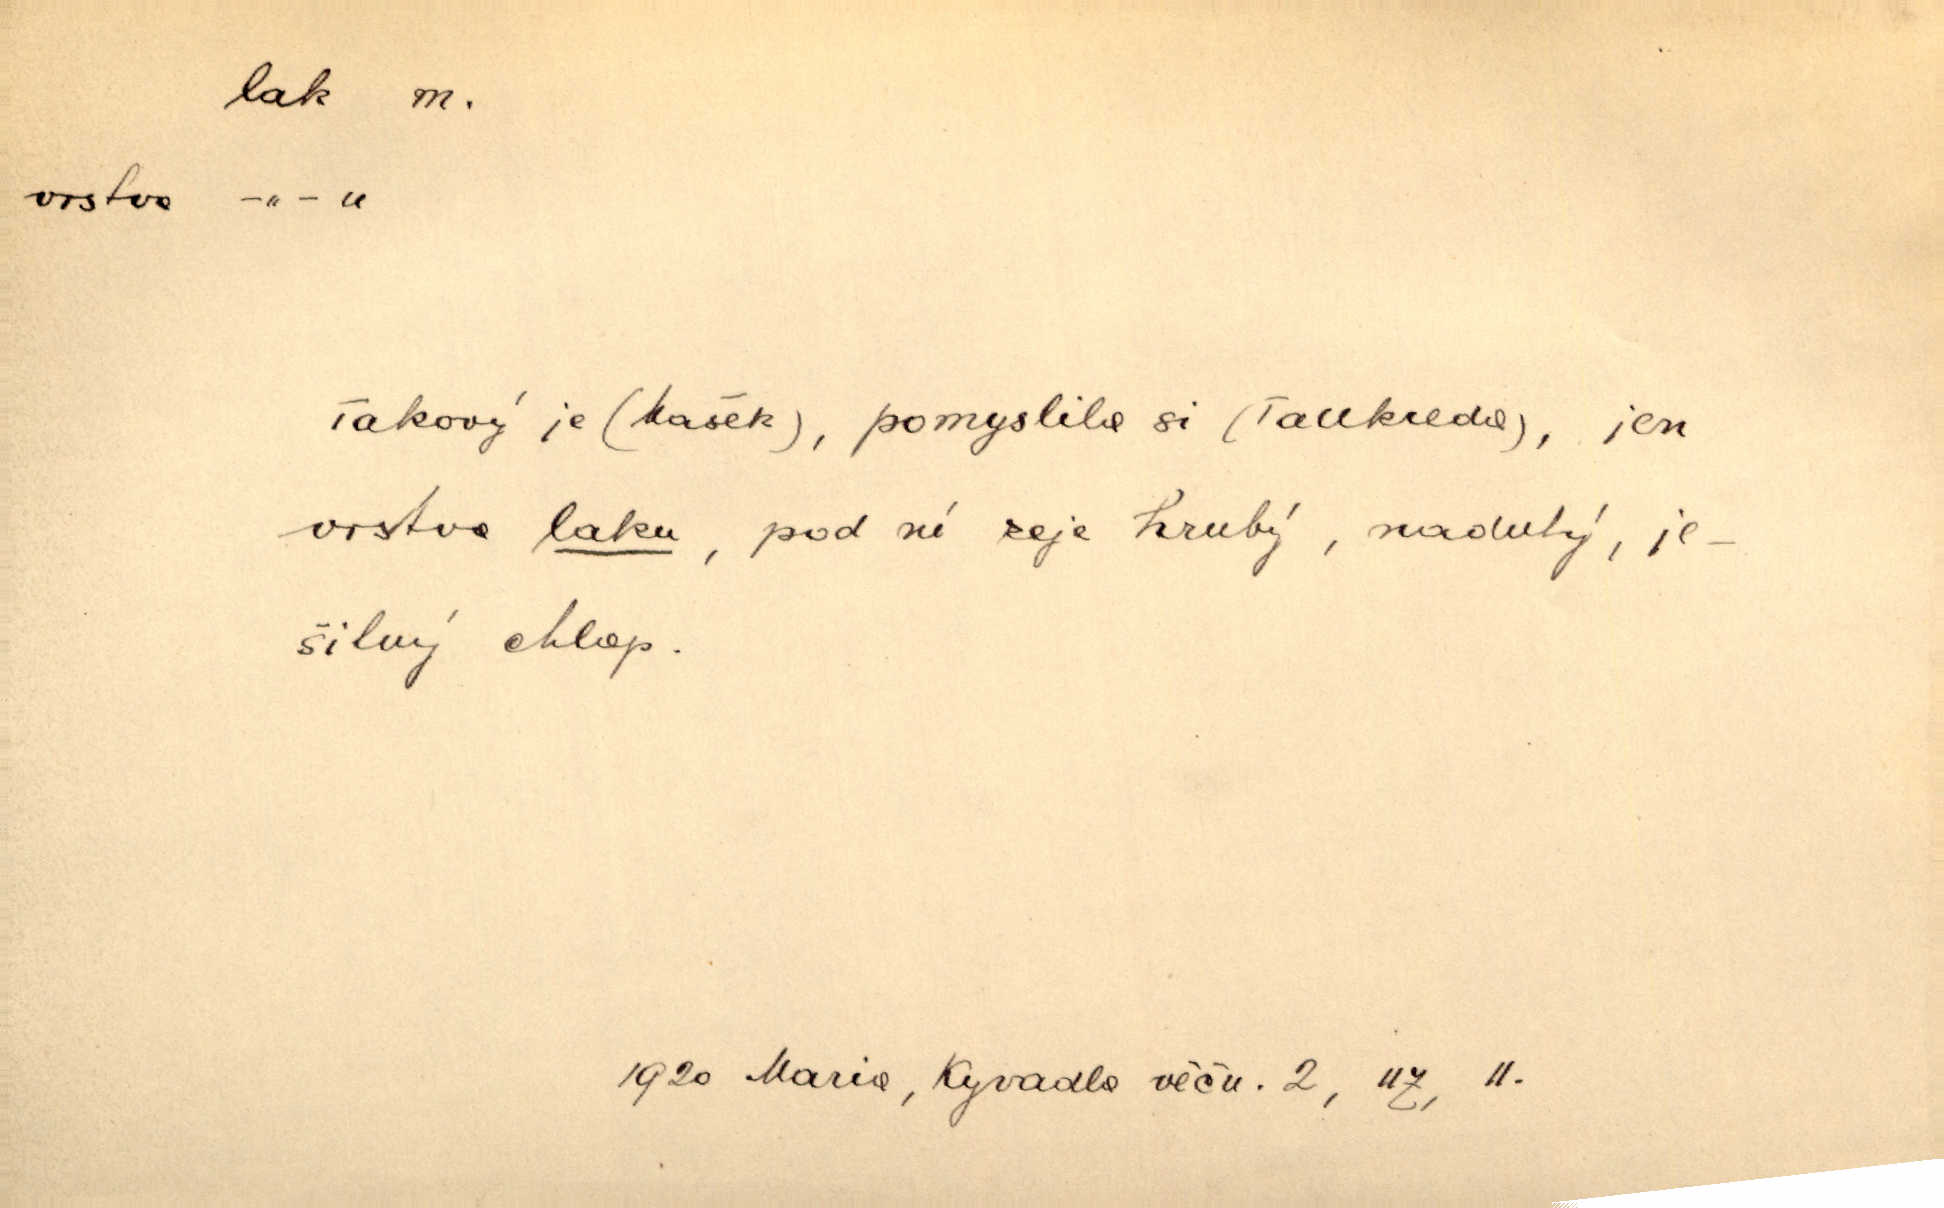 lak m.
vrstva -"- u
Takový je (Mašek), pomyslila si (Tankreda), jen
vrstva laku, pod ní zeje hrubý, nadutý, je-
šitný chlap.
1920 Maria, Kyvadla věčn. 2, 117, 11.